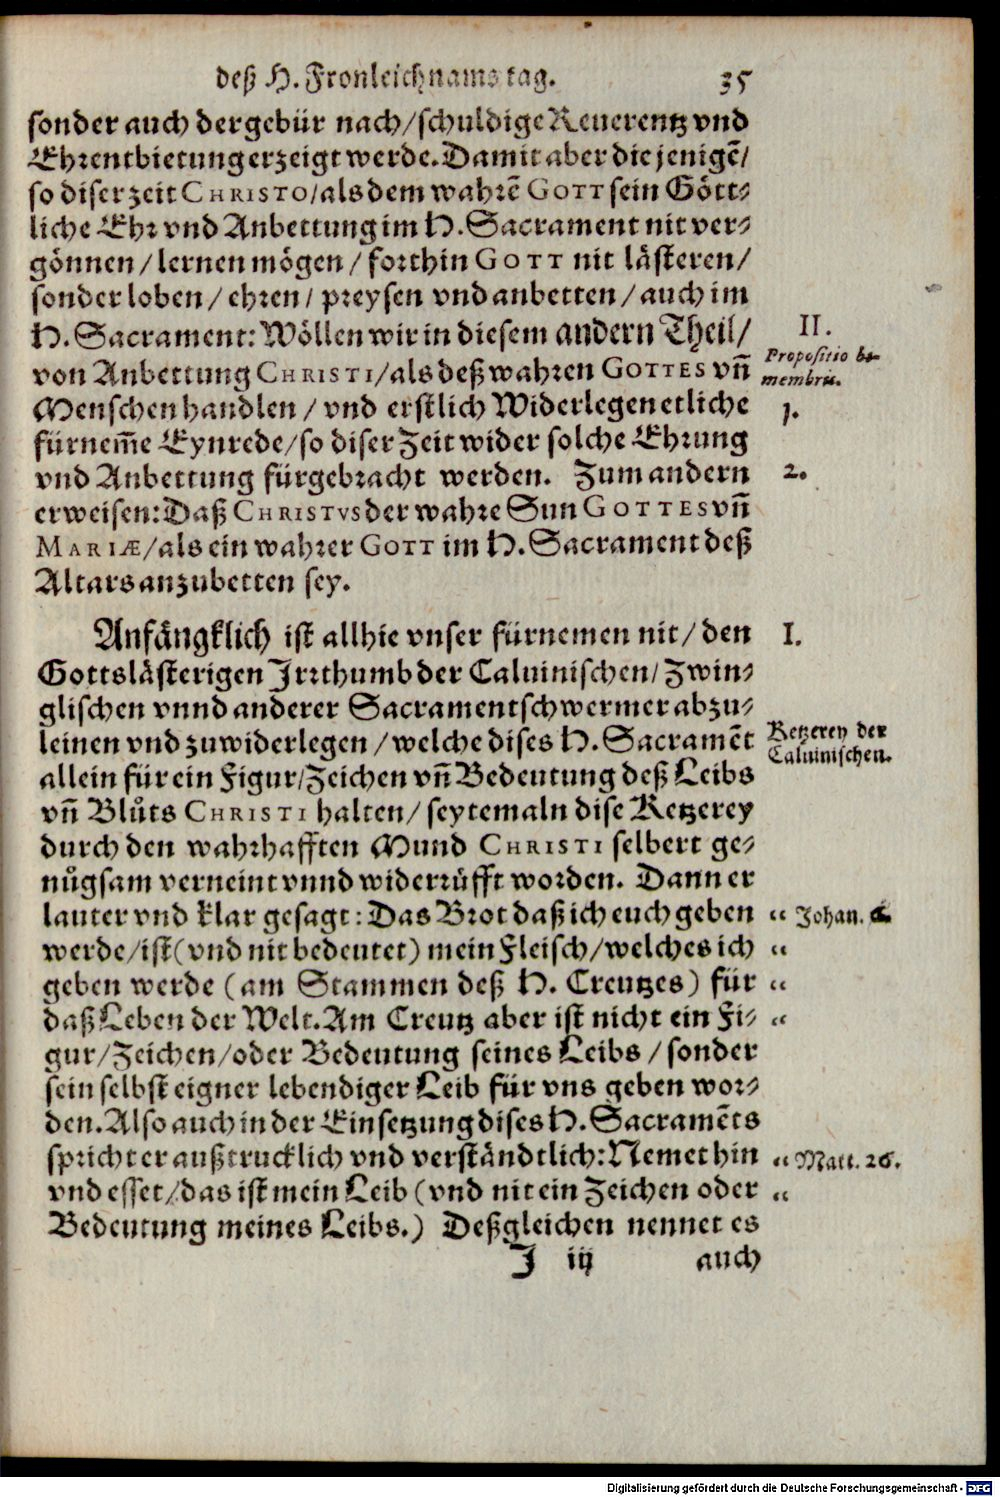 deß H. Fronleichnams tag. 35
sonder auch der gebür nach/ schuldige Reuerentz vnd
Ehrentbietung erzeigt werde. Damit aber die jenigẽ/
so diser zeit CHRISTO/ als dem wahrẽ GOTT sein Gött⸗
liche Ehr vnd Anbettung im H. Sacrament nit ver⸗
gönnen/ lernen mögen/ forthin GOTT nit lästeren/
sonder loben/ ehren/ preysen vnd anbetten/ auch im
H. Sacrament: Wöllen wir in diesem andern Theil/
II.
von Anbettung CHRISTI/ als deß wahren GOTTES vñ
Propositio bi-
membris.
Menschen handlen/ vnd erstlich Widerlegen etliche
1.
fürnem̃e Eynrede/ so diser Zeit wider solche Ehrung
vnd Anbettung fürgebracht werden. Zum andern
2.
erweisen: Daß CHRISTVS der wahre Sun GOTTES vñ
MARIÆ/ als ein wahrer GOTT im H. Sacrament deß
Altars anzubetten sey.
Anfängklich ist allhie vnser fürnemen nit/ den
I.
Gottslästerigen Irrthumb der Caluinischen/ Zwin⸗
glischen vnnd anderer Sacramentschwermer abzu⸗
leinen vnd zuwiderlegen/ welche dises H. Sacramẽt
Ketzerey der
Caluinischen.
allein für ein Figur/ Zeichen vñ Bedeutung deß Leibs
vñ Blůts CHRISTI halten/ seytemaln dise Ketzerey
durch den wahrhafften Mund CHRISTI selbert ge⸗
nůgsam verneint vnnd widerrůfft worden. Dann er
lauter vnd klar gesagt: Das Brot daß ich euch geben
“ Johan. 6.
werde/ ist (vnd nit bedeutet) mein Fleisch/ welches ich
“
geben werde (am Stammen deß H. Creutzes) für
“
daß Leben der Welt. Am Creutz aber ist nicht ein Fi⸗
“
gur/ Zeichen/ oder Bedeutung seines Leibs/ sonder
sein selbst eigner lebendiger Leib für vns geben wor⸗
den. Also auch in der Einsetzung dises H. Sacramẽts
spricht er außtrucklich vnd verständtlich: Nemet hin
“ Matt. 26.
vnd esset/ das ist mein Leib (vnd nit ein Zeichen oder
“
Bedeutung meines Leibs.) Deßgleichen nennet es
J iij auch
Digitalisierung gefördert durch die Deutsche Forschungsgemeinschaft - DFG